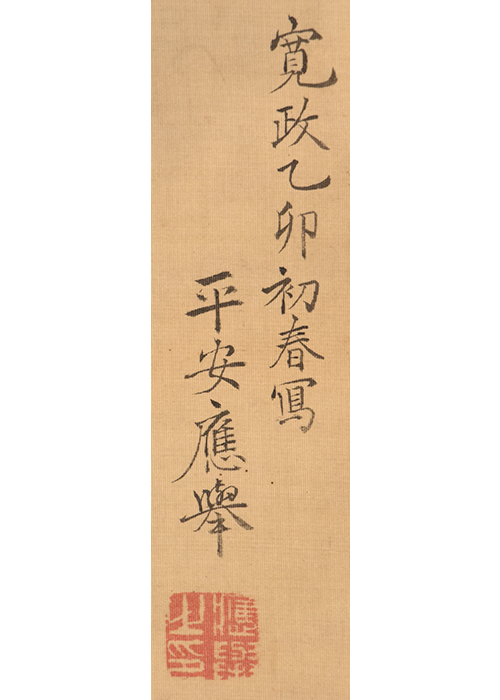 寛政乙卯初春寫
平安應舉
應舉之印